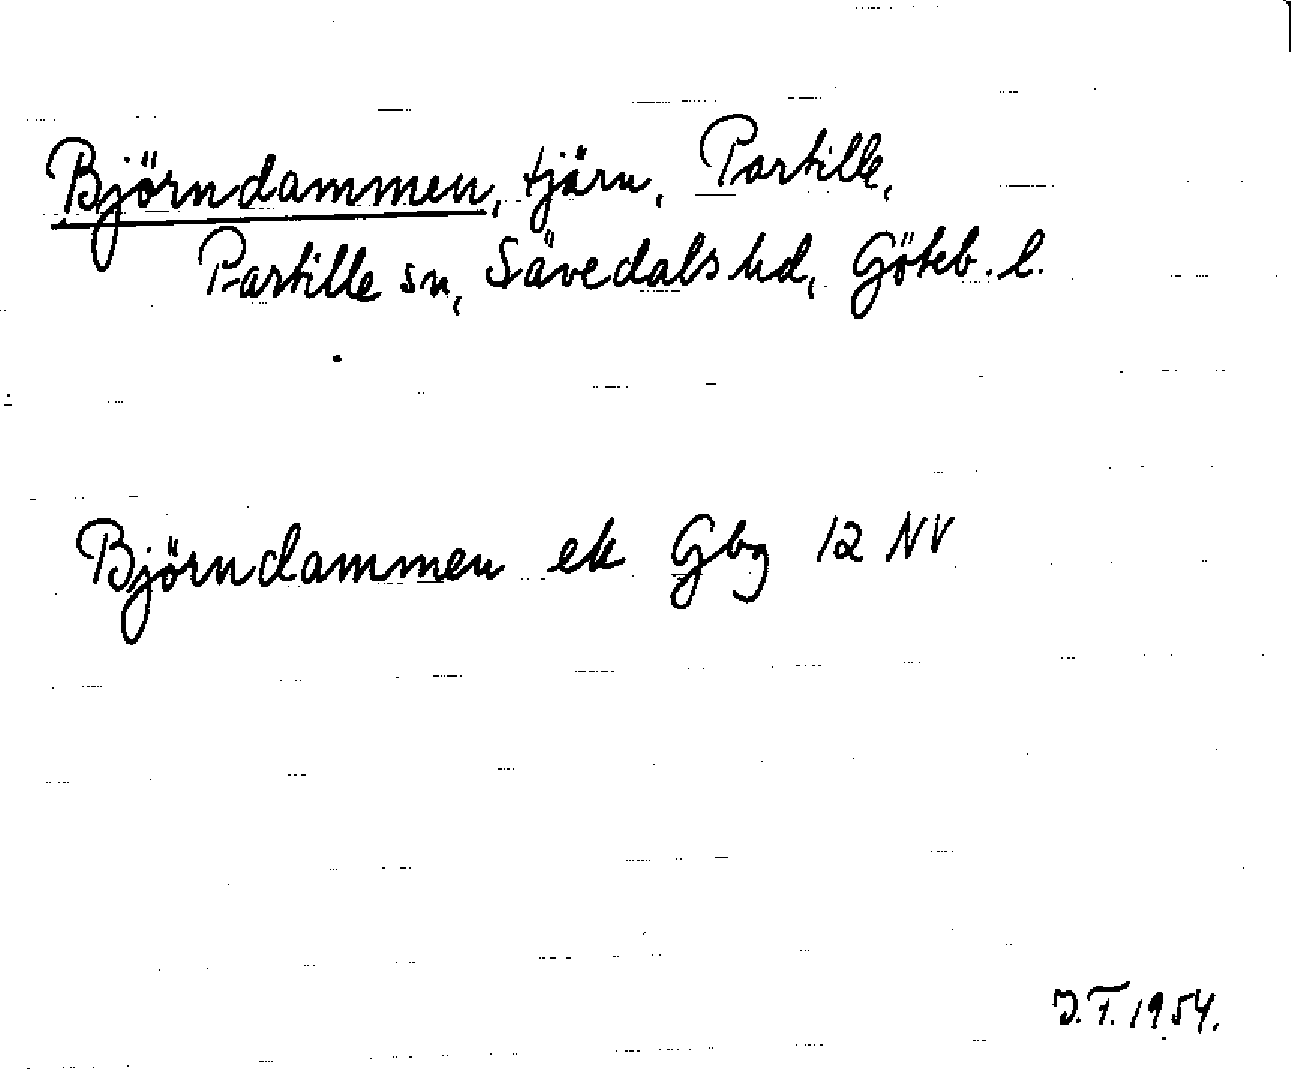 Björndammen, tjärn, Partille,
Partille sn, Sävedals hd, Göteb. l.
Björndammen ek Gbg 12 NV
J.F. 1954.